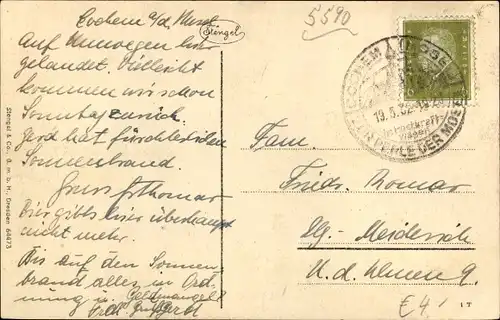 Cochem a/d Mosel
Auf Umwegen hier
gelandet. Vielleicht
kommen wir schon
Sonntag zurück.
Gerd hat fürchterlichen
Sonnenbrand.
Gruss
Bier gibts hier überhaupt
nicht mehr.
Bis auf den Sonnen-
brand alles in Ord-
nung u. Geldmangel?
Gerd
Stengel
Stengel & Co., G. m. b. H., Dresden 64473
5590
COCHEM (MOSEL)
19.5.32
PERLE DER MOSEL
Fam.
Friedr. Romar
Dbg.-Meiderich
U. d. Ulmen 9.
€4,-
1 T